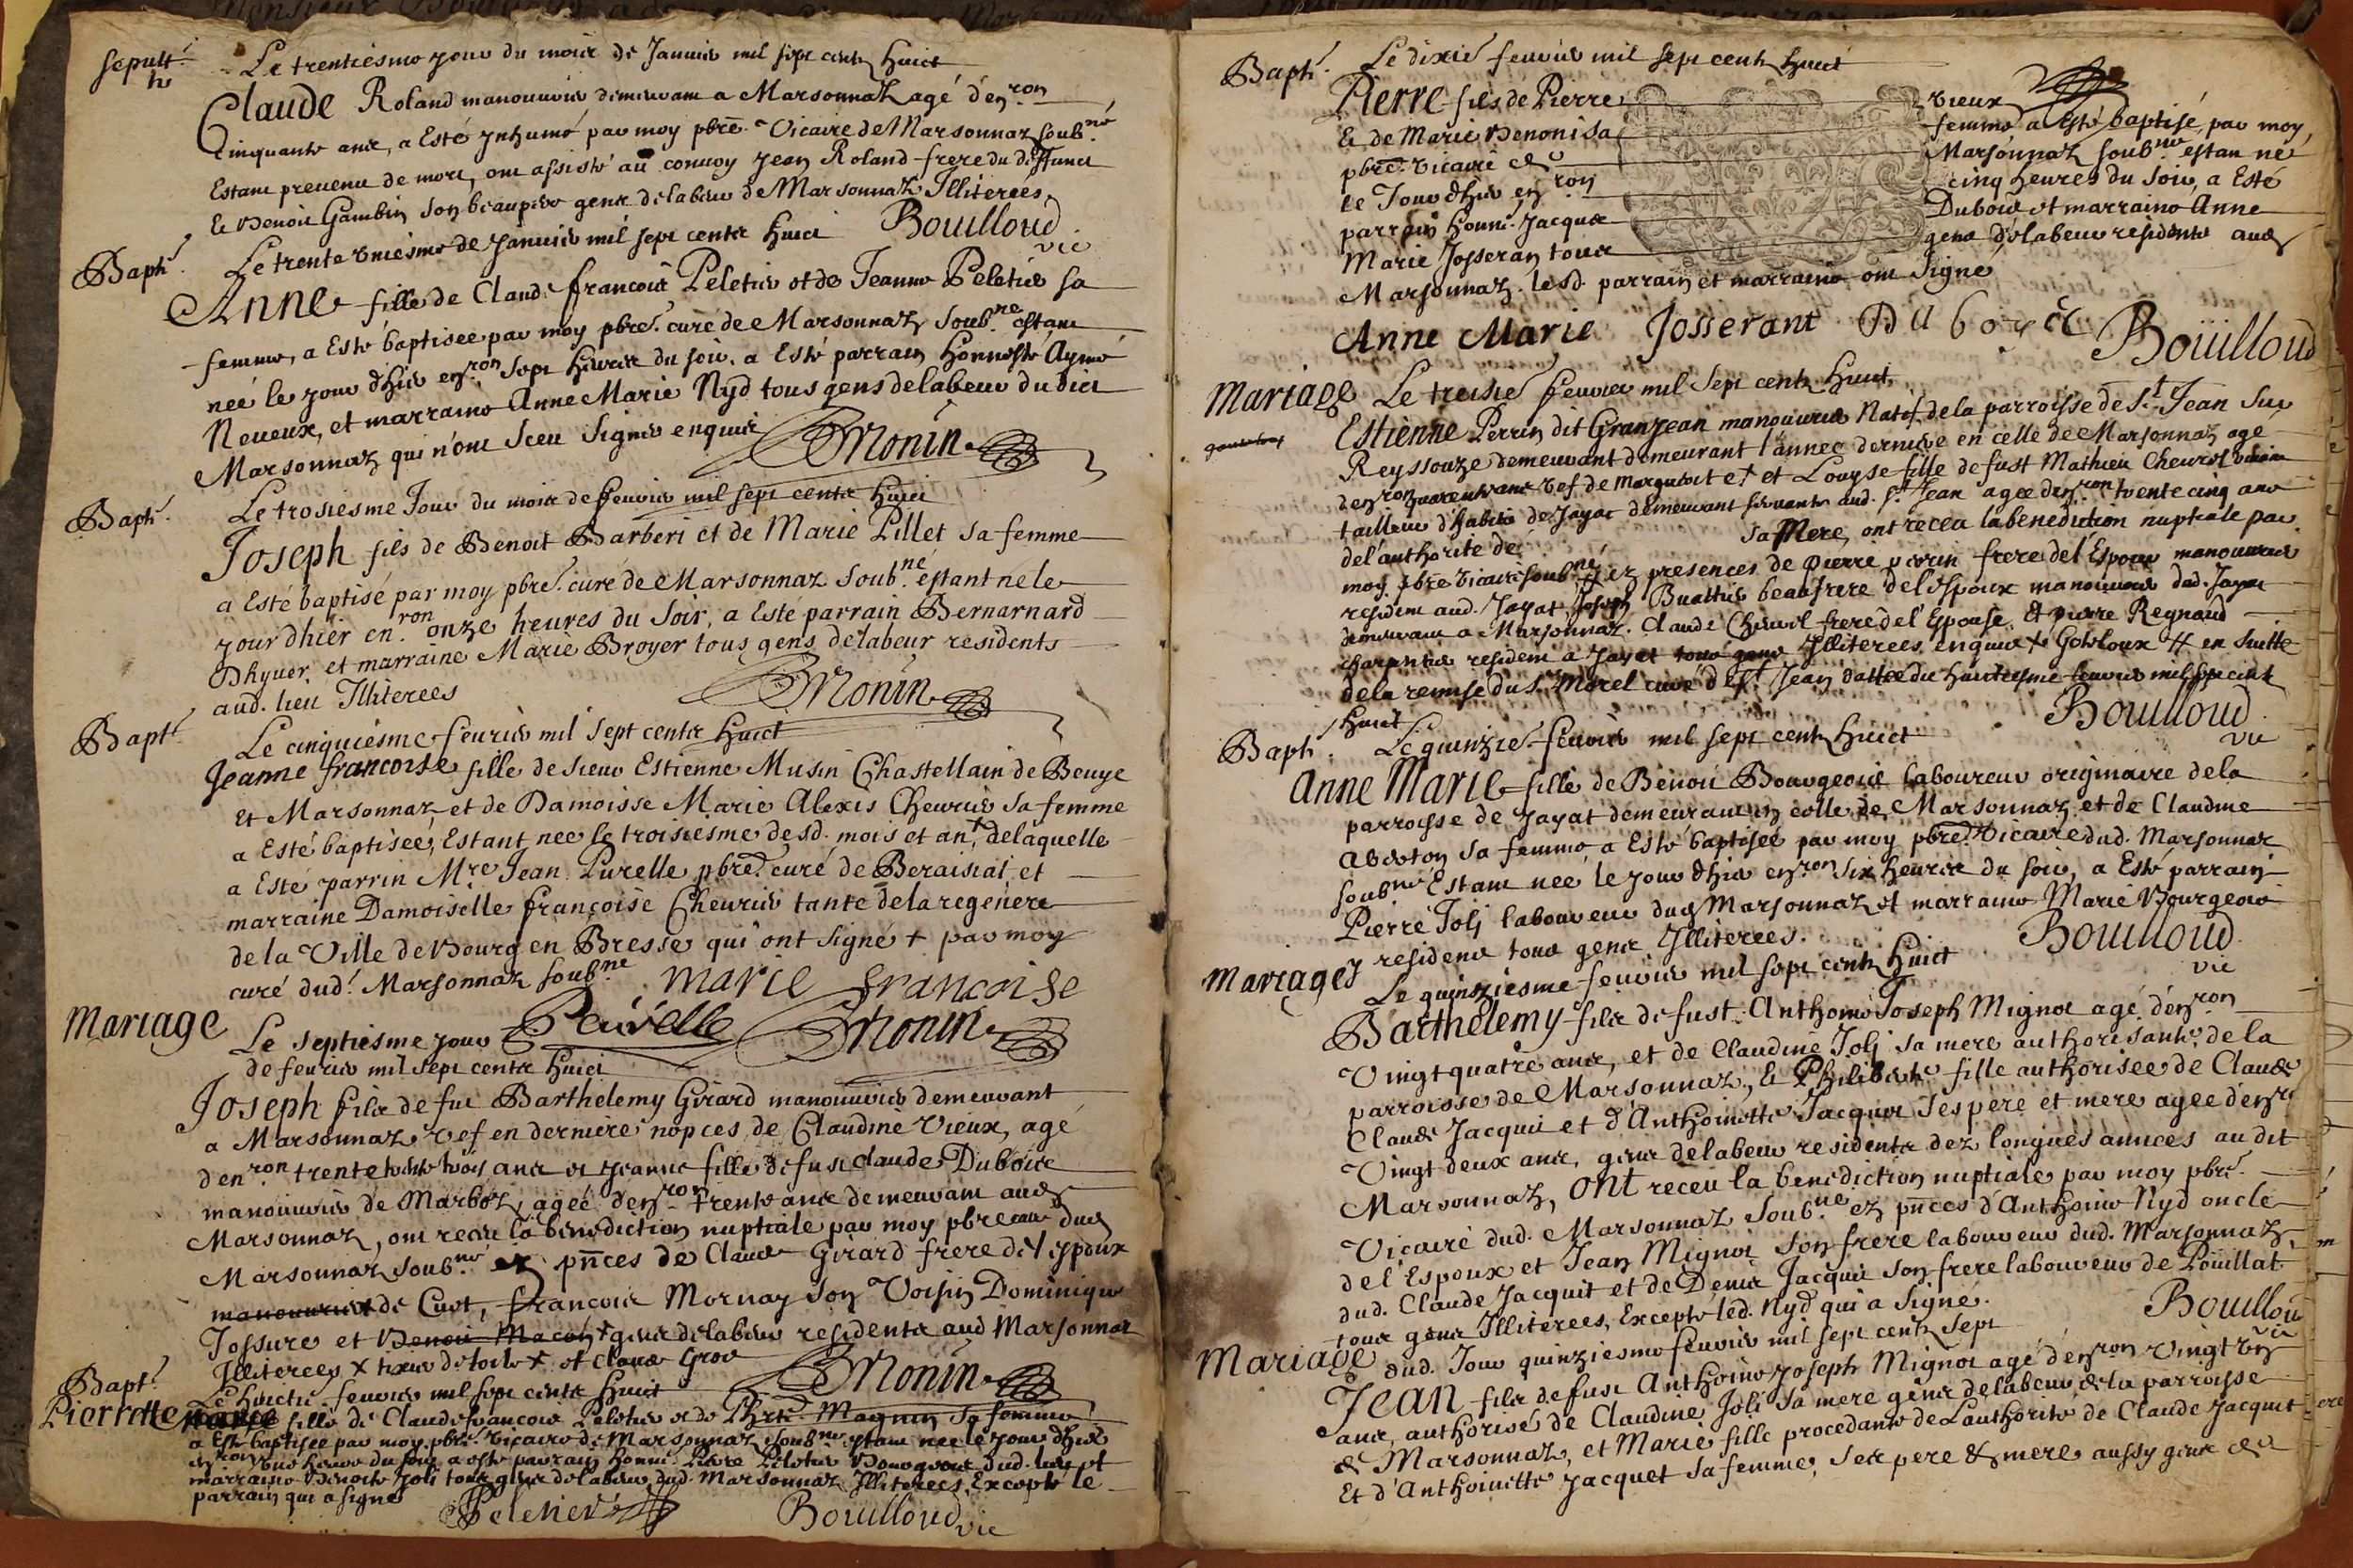 sepult.
re
Le trentiesme jour du mois de Januier mil sept cents huict
Claude Roland manouurier demeurant a Marsonnaz agé d'en.ron
cinquante ans, a Esté ynhumé par moy pbre. Vicaire de Marsonnaz soub.né
Estant preuenu de mort, ont assisté au conuoy Jean Roland frere du deffunct
Et Benoit Gambin son beaupere gens delabeur de Marsonnaz Illiterees,
Bouilloud
vic
Bapt.
Le trente vniesme de Januier mil sept cents huict
Anne fille de Claude françois Peletier et de Jeanne Peletier sa
femme, a Esté baptisee par moy pbre. curé de Marsonnaz soub.ne estant
neé le jour dhier en.ron sept heures du soir, a Esté parrain honneste Aymé
Neueux, et marraine Anne Marie Nyd tous gens delabeur du dict
Marsonnaz qui n'ont sceu signer enquis
Monin
Bapt.
Le troisiesme Jour du mois de feurier mil sept cents huict
Joseph fils de Benoit Barberi et de Marie Pillet sa femme
a Esté baptisé par moy pbre. curé de Marsonnaz soub.né estant né le
jour dhier en.ron onze heures du soir, a Esté parrain Bernarnard
Dhyuer et marraine Marie Broyer tous gens delabeur residents
aud. lieu Illiterees
Monin
Bapt.
Le cinquiesme feurier mil sept cents huict
Jeanne francoise fille de sieur Estienne Musin Chastellain de Beuye
et Marsonnaz, et de Damoisse Marie Alexis Cheurier sa femme
a Esté baptisée, Estant nee le troisiesme desd. mois et an, delaquelle
a Esté parrin M.re Jean Purelle pbre. curé de Beraisiat et
marraine Damoiselle françoise Cheurier tante dela regenere
de la Ville de Bourg en Bresse qui ont signé + par moy
curé dud. Marsonnaz soub.ne
marie francoise
Mariage
Le septiesme jour
Monin
de feurier mil sept cents huict
Joseph fils de fut Barthelemy Girard manouurier demeurant
a Marsonnaz vef en derniere nopces de Claudine Vieux, agé
d'en.ron trente trois ans et Jeanne fille de fut claude Dubois
manouurier de Marboz, ageé d'en.ron trente ans demeurant aud
Marsonnaz, ont receu la benediction nuptiale par moy pbre cure dud
Marsonnaz soub.né ez pnces de Claude Girard frere de l'espoux
manouurier de Cuet, françois Mornay son Voisin Dominique
Jossure et Benoit Macon + gens delabeur residents aud Marsonnaz
Illiterees x tixier de toile x et claude Gros
Monin
Bapt.
Le huictie. feurier mil sept cents huict
Pierrette fille de Claude francois Peletier et de Magnin sa femme
a Esté baptisee par moy pbre. vicaire de Marsonnaz soub.né estant nee le jour dhier
en.ron heure du soir a esté parrain honne. Pierre Peletier Bourgeois dud. lieu et
marraine Benoite Joli tous gens delabeur dud. Marsonnaz Illiterees Excepté le
parrain qui a signé
Peletier
Bouilloud vic
Bapt.
Le dixie. feurier mil sept cents huict
Pierre fils de Pierre Vieux
Et de Marie Benoni sa femme a Esté baptisé par moy
pbre. vicaire de Marsonnaz soub.né estan né
le Jour dhier en.ron cinq heures du soir, a Esté
parrain honne. Jacques Dubois et marraine Anne
Marie Josseran tous gens delabeur residents aud
Marsonnaz. lesd. parrain et marraine ont signé
Anne Marie Josserant Duboys Boüilloud
Mariage
Le treisie. feurier mil sept cents huict
Estienne Perrin dit Granjean manouurier Natif de la parroisse de S.t Jean sur
Reyssouze demeurant demeurant l'annee derniere en celle de Marsonnaz age
d'en.ron quarente ans vef de Marguerit et Louyse fille de fust Mathieu Cheurel
tailleur d'habits de Jayat demeurant seruante aud. S.t Jean agee d'en.ron trente cinq ans
del'authorite de sa Mere, ont receu la benediction nuptiale par
moy pbre vicaire soub.né ez presences de Pierre perrin frere de l'Espoux manouurier
resident aud. Jayat, Joseph Buathier beaufrere de l'espoux manouurier dud. Jayat
demeurant a Marsonnaz. Claude Cheurel frere de l'Espouse, Et pierre Reynaud
charpentier resident a Jayat tous gens Illiterees enquis en suitte
dela remise du S. Morel curé de S.t Jean dattée du huictiesme feurier mil sept cent
huict
Bouilloud
vic
Bapt.
Le quinzie. feurier mil sept cents huict
Anne Marie fille de Benoit Bourgeois laboureur originaire de la
parroisse de Jayat demeurant en celle de Marsonnaz et de Claudine
sa femme a Esté baptisée par moy pbre. vicaire dud. Marsonnaz
soub.né Estant neé le jour dhier en.ron six heures du soir, a Esté parrain
Pierre Joli laboureur dud Marsonnaz et marraine Marie Bourgeois
y residens tous gens Illiterees.
Bouilloud
vic
Mariages
Le quinziesme feurier mil sept cents huict
Barthelemy fils de fust Anthoine Joseph Mignot agé d'en.ron
Vingt quatre ans, et de Claudine Joli sa mere authorisante, de la
parroisse de Marsonnaz, Et Philiberte fille authorisee de Claude
Claude Jacquit et d'Anthoinette Jacquet ses pere et mere agee d'en.
Vingt deux ans, gens delabeur residents dez longues annees au dit
Marsonnaz, ont receu la benediction nuptiale par moy pbre.
Vicaire dud. Marsonnaz soub.ne ez pnces d'Anthoine Nyd oncle
de l'Espoux et Jean Mignot son frere laboureur dud. Marsonnaz,
dud. Claude Jacquit et de Denis Jacquit son frere laboureur de Poüillat
tous gens Illiterees, Excepté led. Nyd qui a signé.
Bouillou
Mariage
dud. Jour quinziesme feurier mil sept cents sept
Jean fils de fust Anthoine Joseph Mignot agé d'en.ron Vingt
ans, authorisé de Claudine Joli sa mere gens delabeur de la parroisse
de Marsonnaz, et Marie fille procedante de L'authorité de Claude Jacquit
Et d'Anthoinette Jacquet sa femme, ses pere & mere aussy gens de